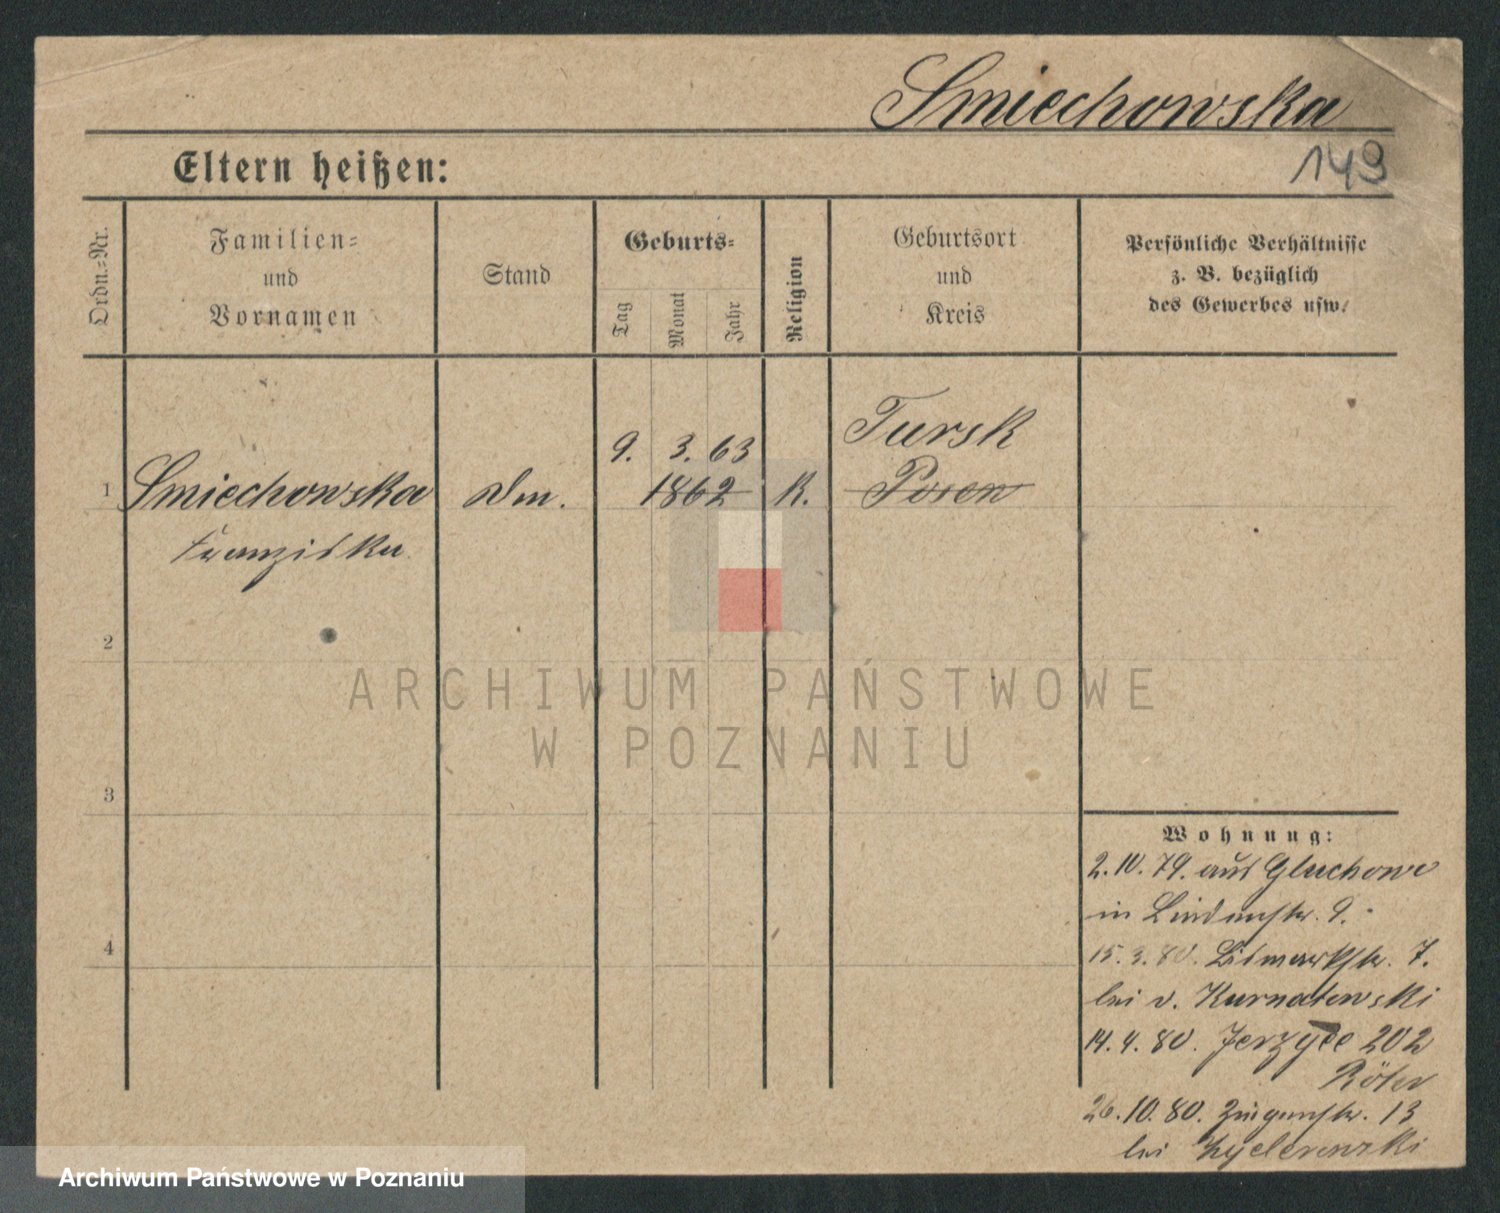 Smiechowska
149
Eltern heißen:
Ordn.-Nr.
Familien-
und
Vornamen
Stand
Geburts-
Tag
Monat
Jahr
Religion
Geburtsort
und
Kreis
Persönliche Verhältnisse
z. B. bezüglich
des Gewerbes usw.
9. 3. 63
Tursk
1 Smiechowska 1862 K. Posen
Franziska
2
ARCHIWUM PAŃSTWOWE
W POZNANIU
3
Wohnung:
2.10.79. aus Gluchowo
in Lindenstr. 9.
4
15.3.80. Bismarkstr. 7.
bei v. Kurnatowski
14.4.80. Jerzyce 202
Röter
26.10.80. 13
bei
Archiwum Państwowe w Poznaniu